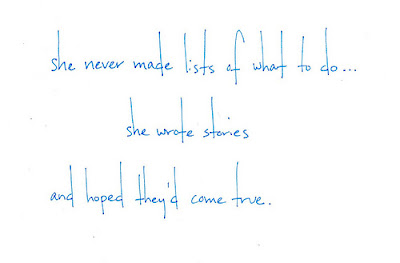 she never made lists of what to do...
she wrote stories
and hoped they'd come true.